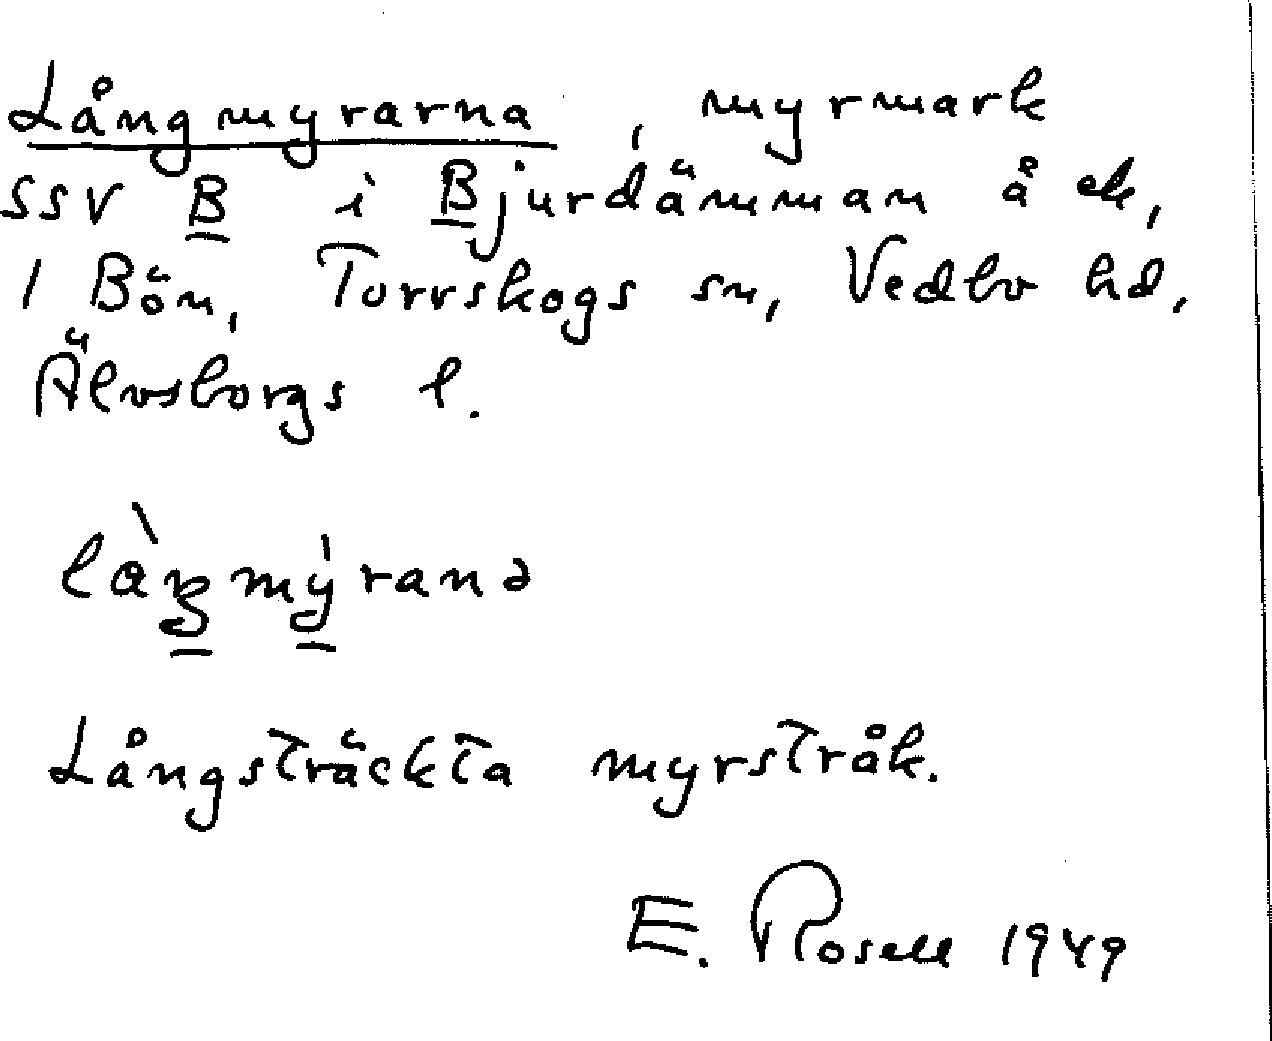 Långmyrarna, myrmark
SSV B i Bjurdämman å ek,
1 Bön, Torrskogs sn, Vedbo hd,
Älvsborgs l.
Långsträckta myrstråk.
E. Rosell 1949